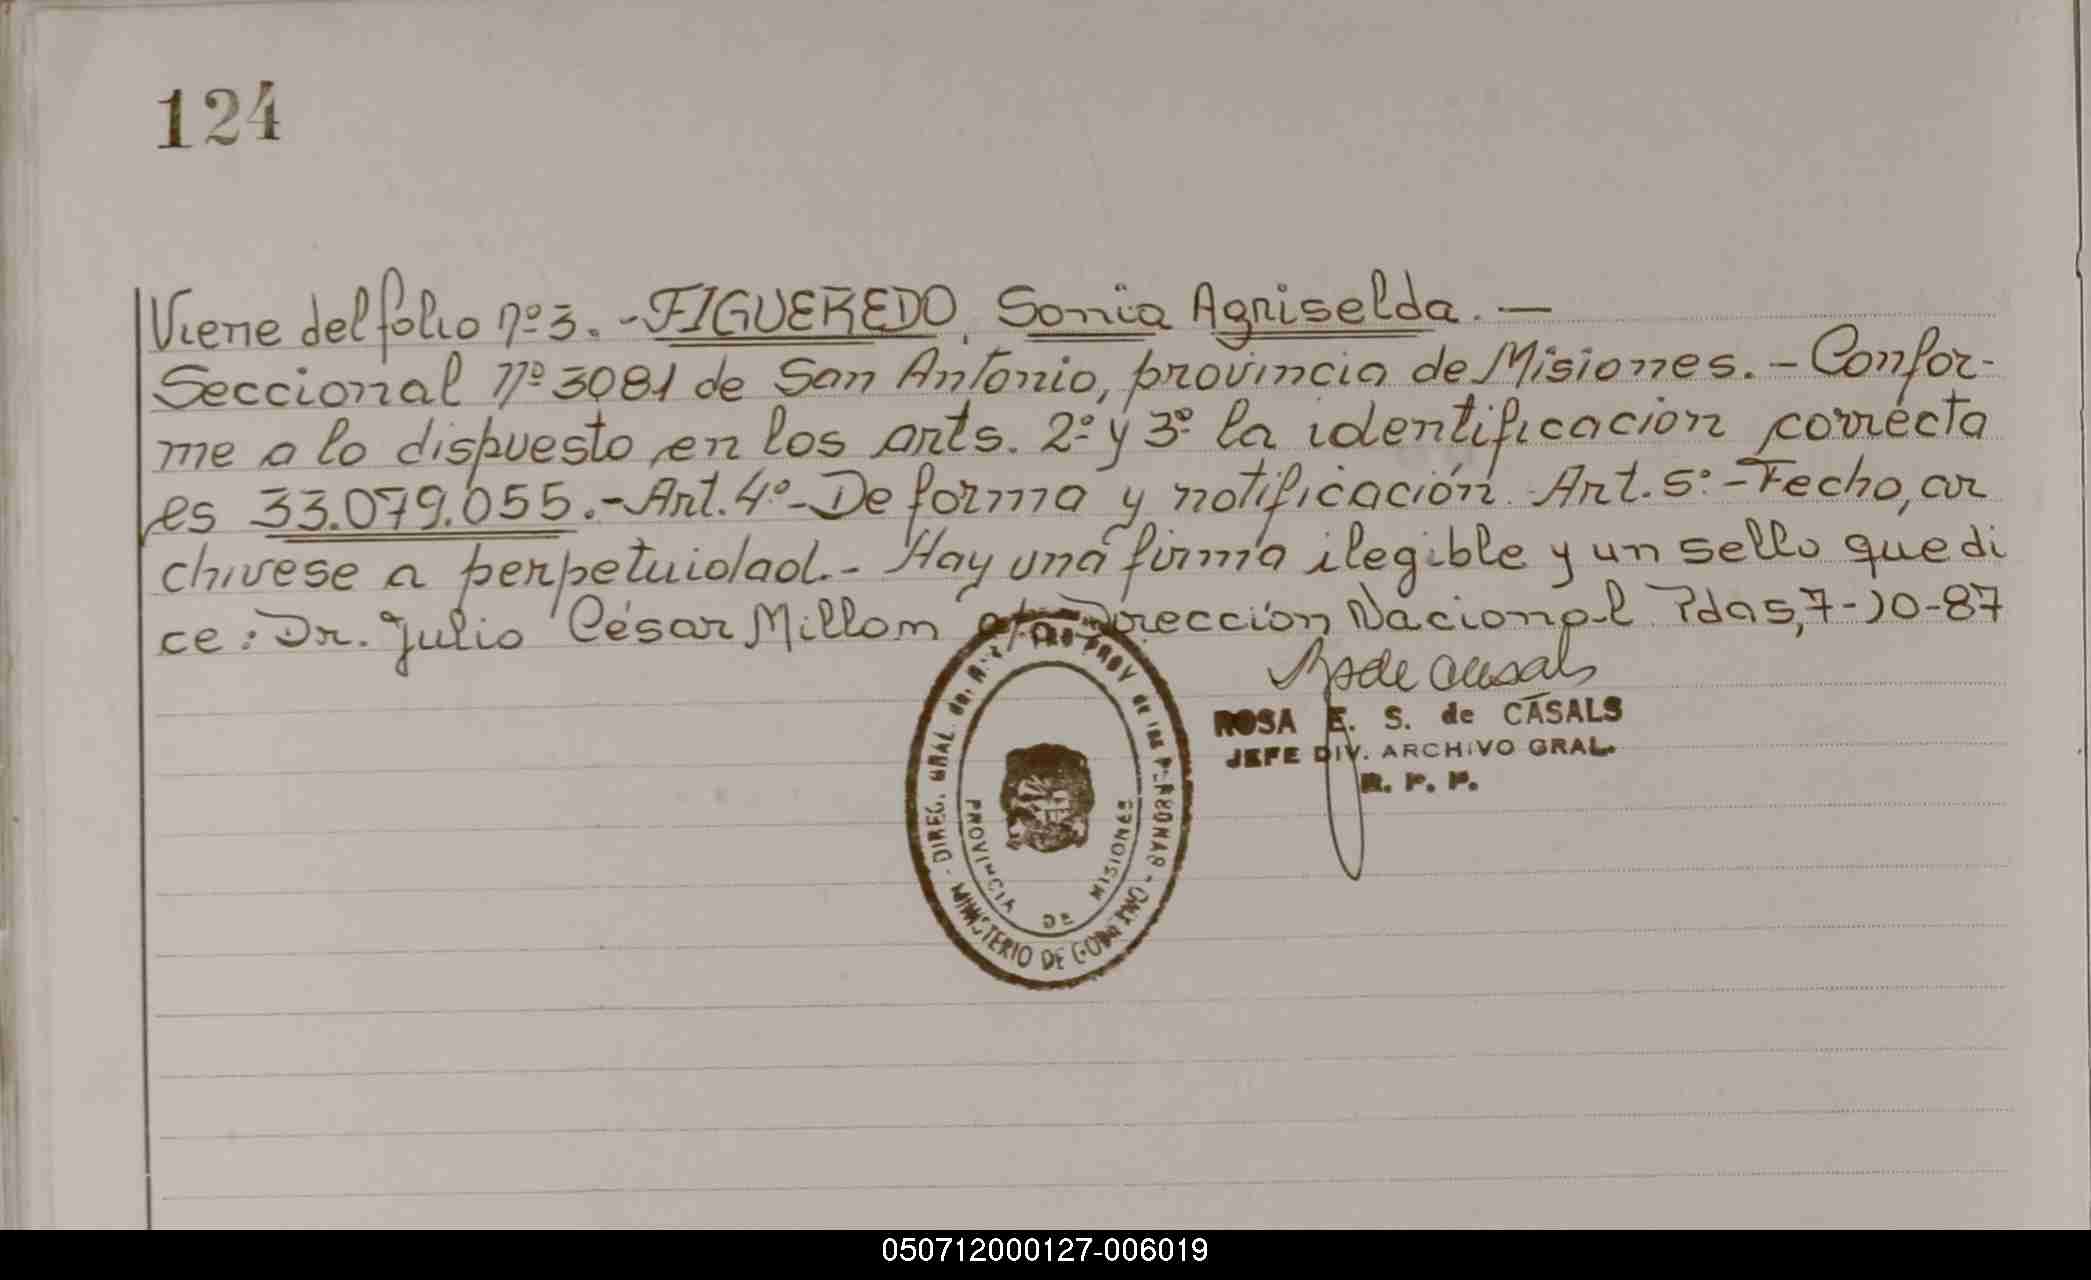 124
Viene del folio nº 3. - FIGUEREDO, Sonia Agriselda. —
Seccional nº 3081 de San Antonio, provincia de Misiones. - Confor-
me a lo dispuesto en los arts. 2º y 3º la identificacion correcta
es 33.079.055. - Art. 4º - De forma y notificación. Art. 5º - Fecho, ar
chivese a perpetuidad. - Hay una firma ilegible y un sello que di
ce: Dr. Julio César Millom Dirección Nacional. Pdas, 7-10-87
ROSA E. S. de CASALS
JEFE DIV. ARCHIVO GRAL.
R. P. P.
DIREC. GRAL. del PROV de las PERSONAS - MINISTERIO DE GOBIERNO -
PROVINCIA DE MISIONES
050712000127-006019